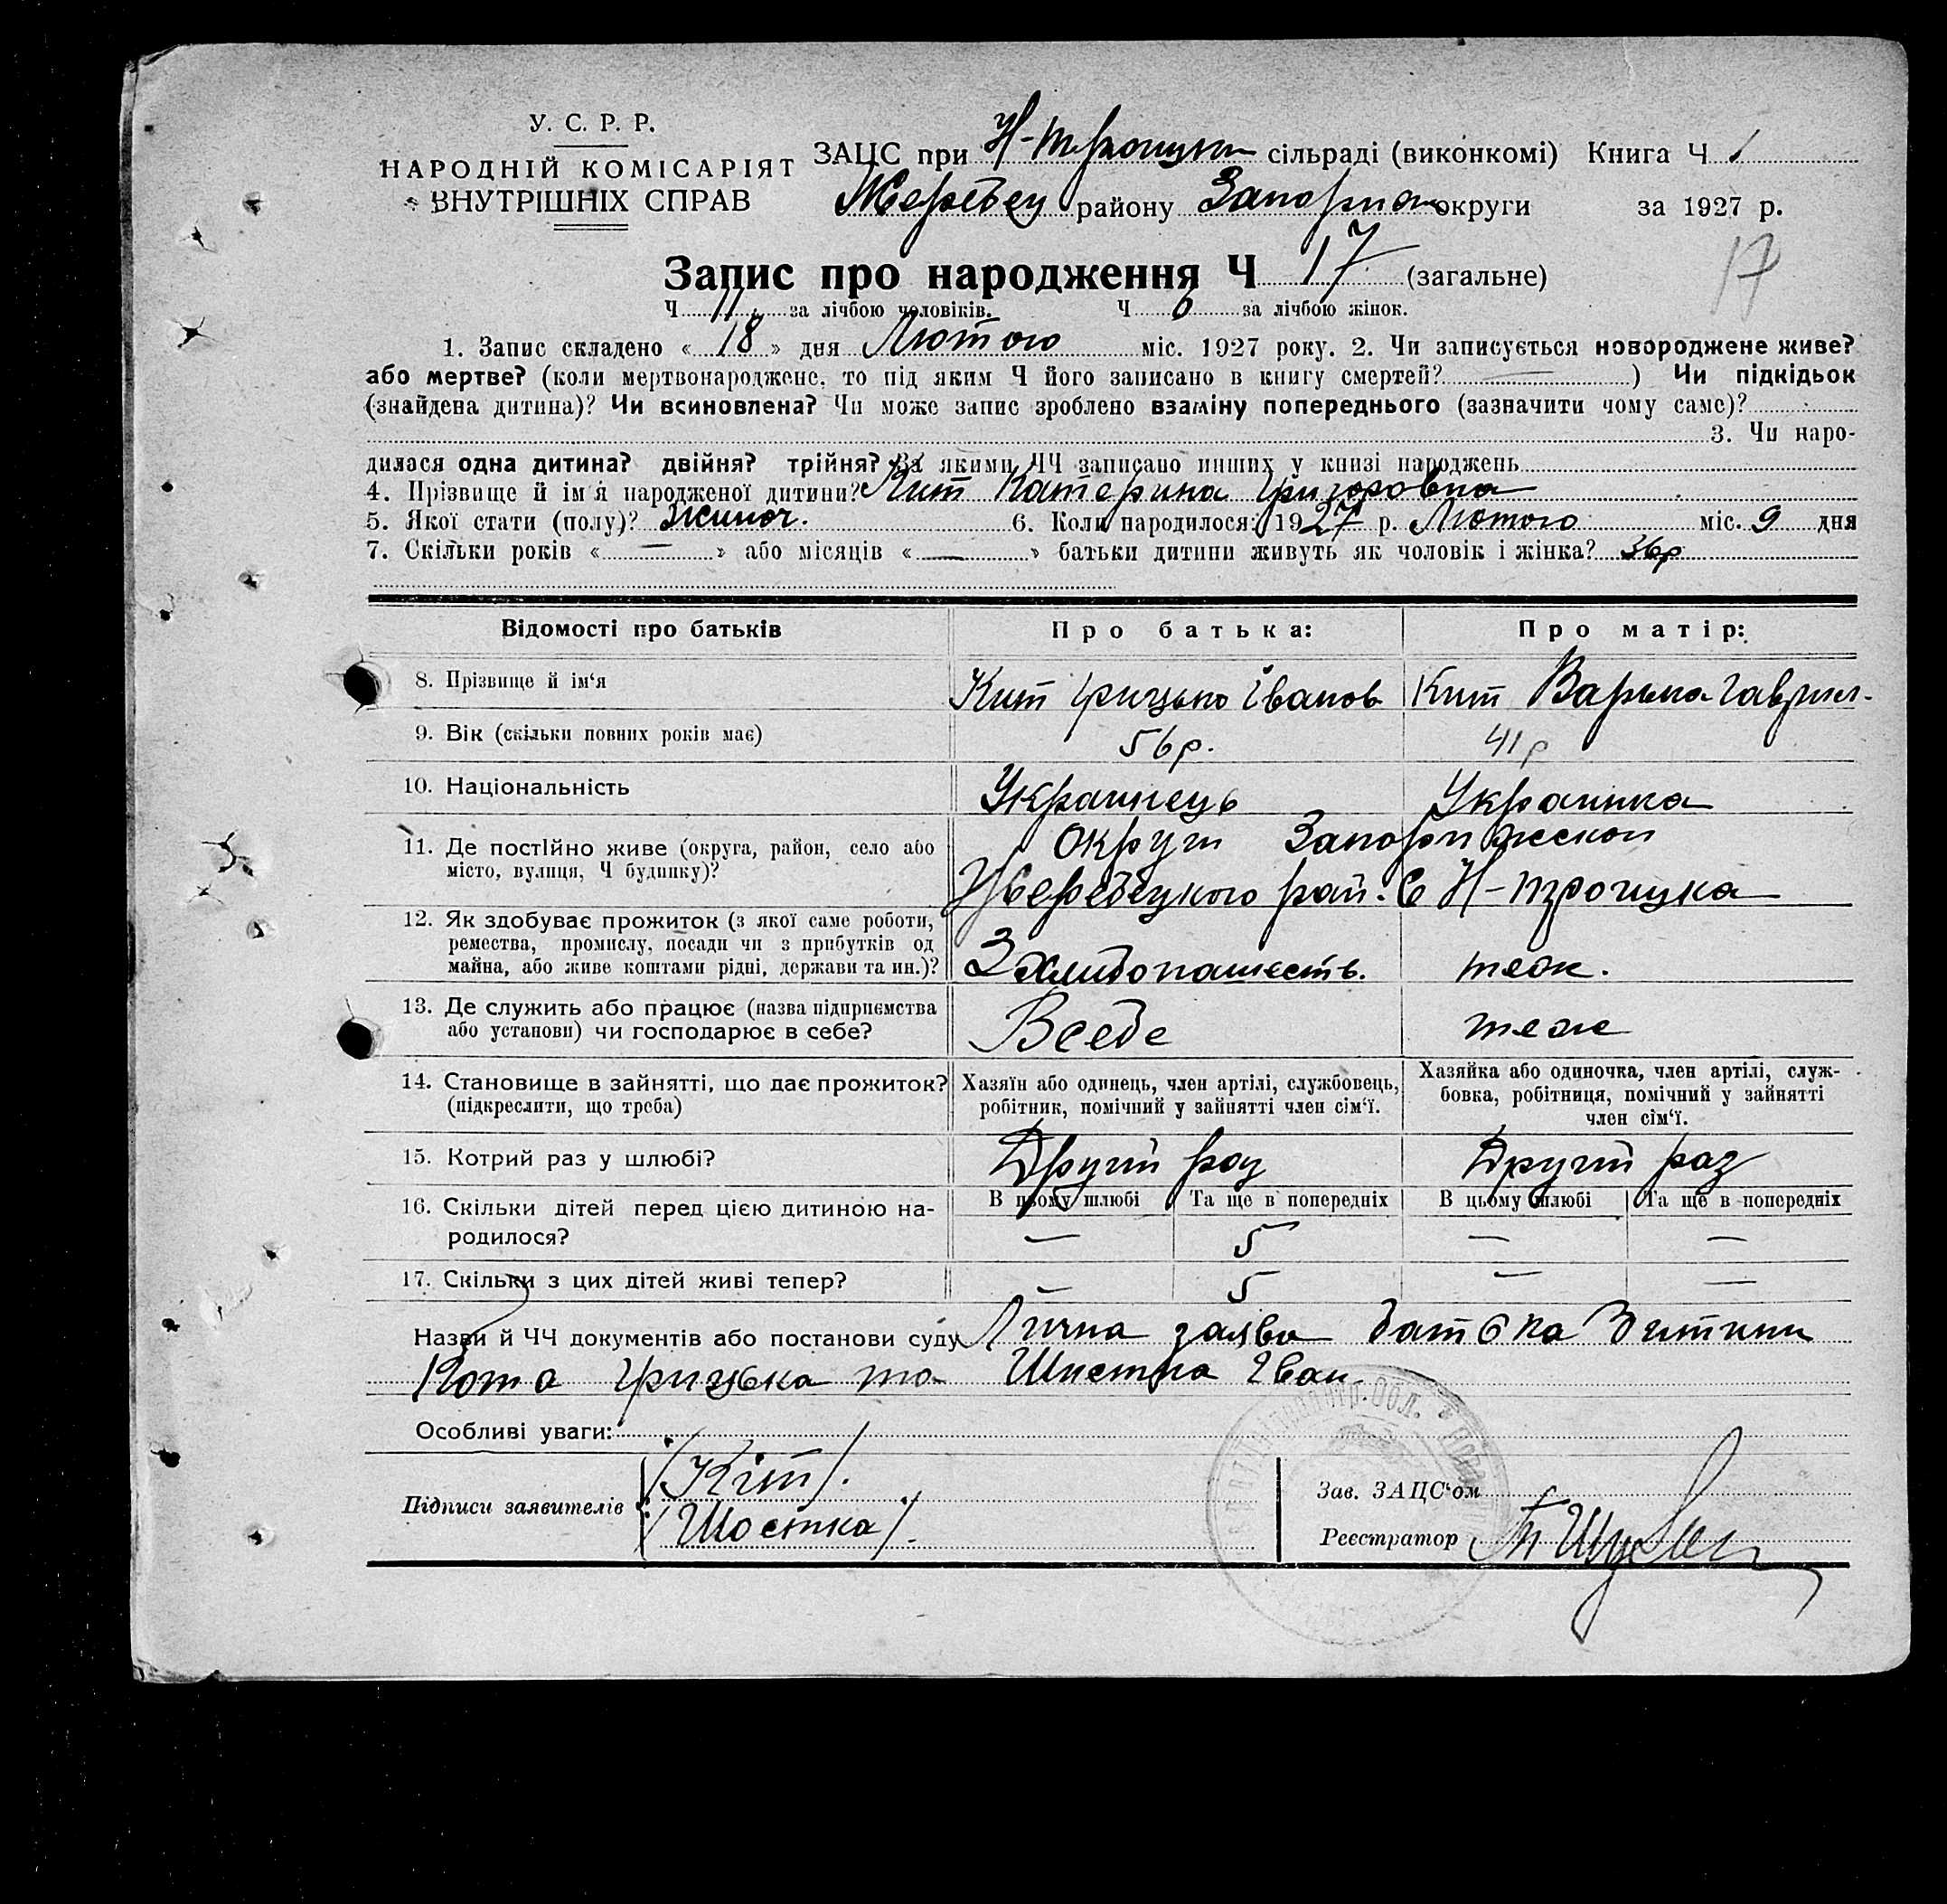 У. С. Р. Р.
НАРОДНІЙ КОМІСАРІЯТ
ВНУТРІШНІХ СПРАВ
ЗАЦС при Н-троицкій сільраді (виконкомі) Книга Ч 1
Жеребец району Запориж округи за 1927 р.
17
Запис про народження Ч 17 (загальне)
Ч 11 за лічбою чоловіків. Ч 6 за лічбою жінок.
1. Запис складено « 18 » дня Лютого міс. 1927 року. 2. Чи записується новороджене живе?
або мертве? (коли мертвонароджене, то під яким Ч його записано в книгу смертей? — ) Чи підкідьок
(знайдена дитина)? Чи всиновлена? Чи може запис зроблено взаміну попереднього (зазначити чому саме)?
3. Чи наро-
дилася одна дитина? двійня? трійня? За якими ЧЧ записано инших у книзі народжень
4. Прізвище й ім'я народженої дитини? Кит Катерина Григоровна
5. Якої стати (полу)? жиноч. 6. Коли народилося: 1927 р. Лютого міс. 9 дня
7. Скільки років « — » або місяців « — » батьки дитини живуть як чоловік і жінка? 3бр
Відомості про батьків Про батька: Про матір:
8. Прізвище й ім'я Кит Грицько Іванов Кит Варька Гаврил.
9. Вік (скільки повних років має) 56р. 41р
10. Національність Украинець Украинка
11. Де постійно живе (округа, район, село або Округи Запорижскои
місто, вулиця, Ч будинку)? Жеребецкого рай. С Н-троицка
12. Як здобуває прожиток (з якої саме роботи,
ремества, промислу, посади чи з прибутків од
майна, або живе коштами рідні, держави та ин.)? З хлибопашеств. теж.
13. Де служить або працює (назва підприємства
або установи) чи господарює в себе? Всебе теж
14. Становище в зайнятті, що дає прожиток? Хазяїн або одинець, член артілі, службовець, Хазяйка або одиночка, член артілі, служ-
(підкреслити, що треба) робітник, помічний у зайнятті член сім'ї. бовка, робітниця, помічний у зайнятті
член сім'ї.
15. Котрий раз у шлюбі? Другий раз Другий раз
В цьому шлюбі Та ще в попередніх В цьому шлюбі Та ще в попередніх
16. Скільки дітей перед цією дитиною на-
родилося? — 5 — —
17. Скільки з цих дітей живі тепер? — 5 — —
Назви й ЧЧ документів або постанови суду Лична заява батька дитини
Кота Грицька та Шостка Іван
Особливі уваги:
Підписи заявителів /Кіт/.
/Шостка/.
Зав. ЗАЦС'ом
Реєстратор